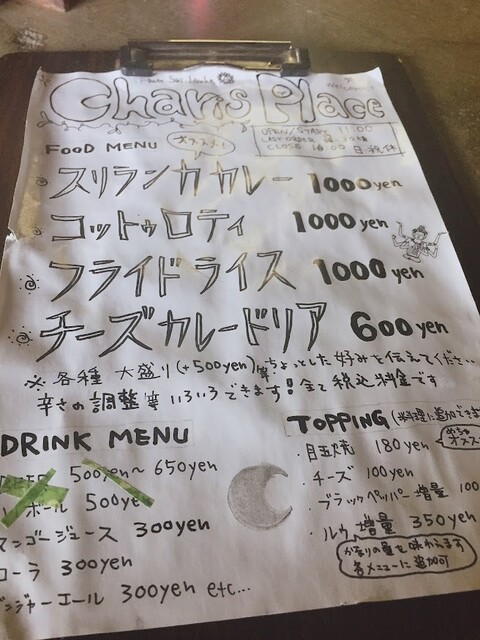 Welcome
Chan's Place
OPEN/START 11:00
LAST ORDER
CLOSE 16:00 日・祝 休
FOOD MENU オススメ!
スリランカカレー 1000yen
コットゥロティ 1000yen
フライドライス 1000yen
チーズカレードリア 600yen
※各種 大盛り(+500yen)等ちょっとした好みを伝えてください
辛さの調整等いろいろできます!全て税込料金です
DRINK MENU
500yen〜650yen
ボール 500yen
マンゴージュース 300yen
コーラ 300yen
ンジャーエール 300yen etc...
TOPPING (料理に追加できます
・目玉焼 180yen めちゃオススメ
・チーズ 100yen
・ブラックペッパー増量 100
・ルウ増量 350yen
かなりの量を味わえます
各メニューに追加可